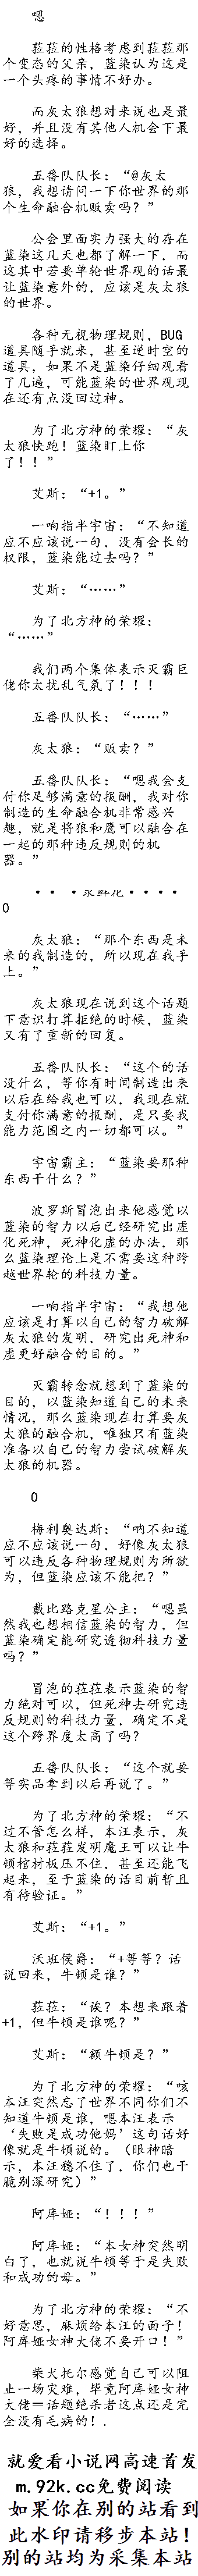 嗯
菈菈的性格考虑到菈菈那
个变态的父亲，蓝染认为这是
一个头疼的事情不好办。
而灰太狼想对来说也是最
好，并且没有其他人机会下最
好的选择。
五番队队长：“@灰太
狼，我想请问一下你世界的那
个生命融合机贩卖吗？”
公会里面实力强大的存在
蓝染这几天也都了解一下，而
这其中若要单轮世界观的话最
让蓝染意外的，应该是灰太狼
的世界。
各种无视物理规则，BUG
道具随手就来，甚至逆时空的
道具，如果不是蓝染仔细观看
了几遍，可能蓝染的世界观现
在还有点没回过神。
为了北方神的荣耀：“灰
太狼快跑！蓝染盯上你
了！！”
艾斯：“+1。”
一响指半宇宙：“不知道
应不应该说一句，没有会长的
权限，蓝染能过去吗？”
艾斯：“……”
为了北方神的荣耀：
“……”
我们两个集体表示灭霸巨
佬你太扰乱气氛了！！！
五番队队长：“……”
灰太狼：“贩卖？”
五番队队长：“嗯我会支
付你足够满意的报酬，我对你
制造的生命融合机非常感兴
趣，就是将狼和鹰可以融合在
一起的那种违反规则的机
器。”
·· ·求鲜花····
0
灰太狼：“那个东西是未
来的我制造的，所以现在我手
上。”
灰太狼现在说到这个话题
下意识打算拒绝的时候，蓝染
又有了重新的回复。
五番队队长：“这个的话
没什么，等你有时间制造出来
以后在给我也可以，我现在就
支付你满意的报酬，是只要我
能力范围之内一切都可以。”
宇宙霸主：“蓝染要那种
东西干什么？”
波罗斯冒泡出来他感觉以
蓝染的智力以后已经研究出虚
化死神，死神化虚的办法，那
么蓝染理论上是不需要这种跨
越世界轮的科技力量。
一响指半宇宙：“我想他
应该是打算以自己的智力破解
灰太狼的发明，研究出死神和
虚更好融合的目的。”
灭霸转念就想到了蓝染的
目的，以蓝染知道自己的未来
情况，那么蓝染现在打算要灰
太狼的融合机，唯独只有蓝染
准备以自己的智力尝试破解灰
太狼的机器。
0
梅利奥达斯：“呐不知道
应不应该说一句，好像灰太狼
可以违反各种物理规则为所欲
为，但蓝染应该不能把？”
戴比路克星公主：“嗯虽
然我也想相信蓝染的智力，但
蓝染确定能研究透彻科技力量
吗？”
冒泡的菈菈表示蓝染的智
力绝对可以，但死神去研究违
反规则的科技力量，确定不是
这个跨界度太高了吗？
五番队队长：“这个就要
等实品拿到以后再说了。”
为了北方神的荣耀：“不
过不管怎么样，本汪表示，灰
太狼和菈菈发明魔王可以让牛
顿棺材板压不住，甚至还能飞
起来，至于蓝染的话目前暂且
有待验证。”
艾斯：“+1。”
沃班侯爵：“+等等？话
说回来，牛顿是谁？”
菈菈：“诶？本想来跟着
+1，但牛顿是谁呢？”
艾斯：“额牛顿是？”
为了北方神的荣耀：“咳
本汪突然忘了世界不同你们不
知道牛顿是谁，嗯本汪表示
‘失败是成功他妈’这句话好
像就是牛顿说的。（眼神暗
示，本汪稳不住了，你们也干
脆别深研究）”
阿库娅：“！！！”
阿库娅：“本女神突然明
白了，也就说牛顿等于是失败
和成功的母。”
为了北方神的荣耀：“不
好意思，麻烦给本汪的面子！
阿库娅女神大佬不要开口！”
柴犬托尔感觉自己可以阻
止一场灾难，毕竟阿库娅女神
大佬＝话题绝杀者这点还是完
全没有毛病的！.
就爱看小说网高速首发
m.92k.cc免费阅读
如果你在别的站看到
此水印请移步本站！
别的站均为采集本站